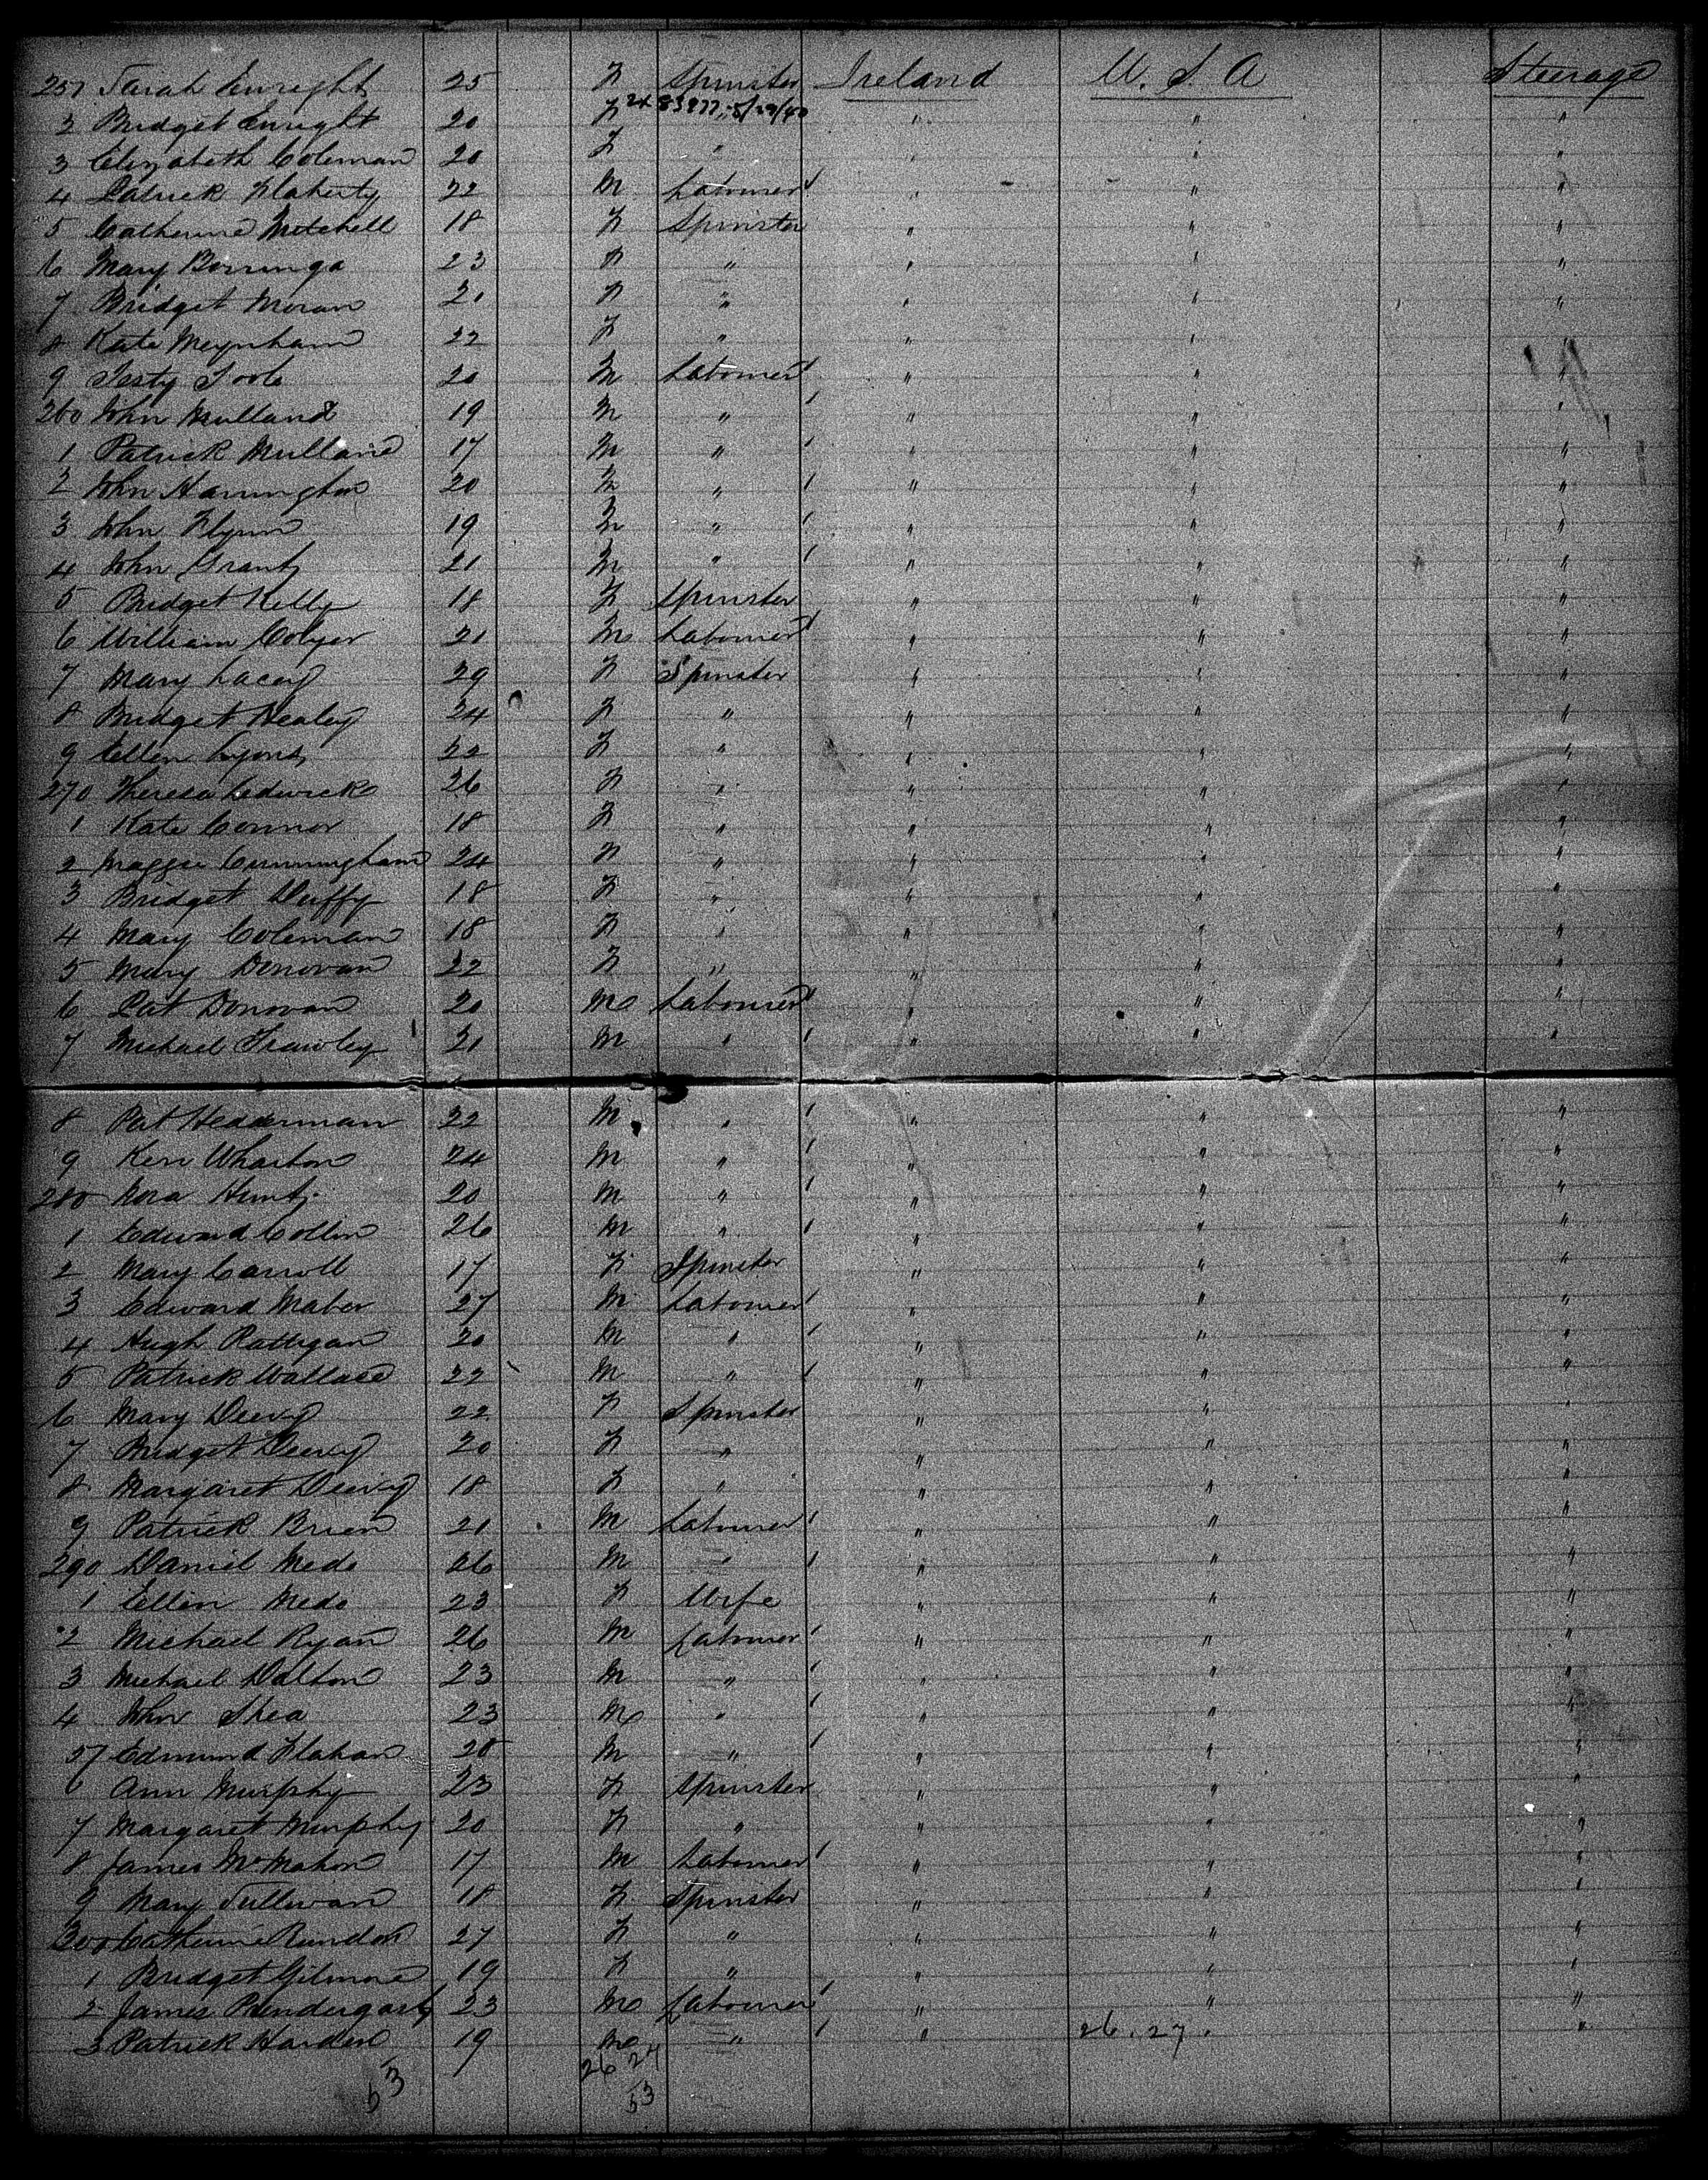 251 Sarah Enright 25 F Spinster Ireland U. S. A Steerage
2 Bridget Enright 20 F 2x 83977 5/29/40 " " "
3 Elizabeth Coleman 20 F " " " "
4 Patrick Flaherty 22 M Labourer " " "
5 Catherine Mitchell 18 F Spinster " " "
6 Mary 23 F " " " "
7 Bridget Moran 21 F " " " "
8 Kate Meynham 22 F " " " "
9 Festy Toole 20 M Labourer " " "
260 John Mulland 19 M " " " "
1 Patrick Mullane 17 M " " " "
2 John Harrington 20 M " " " "
3 John Flynn 19 M " " " "
4 John Grant 21 M " " " "
5 Bridget Kelly 18 F Spinster " " "
6 William Colyer 21 M Labourer " " "
7 Mary Lacey 29 F Spinster " " "
8 Bridget Healey 24 F " " " "
9 Ellen Lyons 22 F " " " "
270 Theresa Ledwick 26 F " " " "
1 Kate Connor 18 F " " " "
2 Maggie Cunningham 24 F " " " "
3 Bridget Duffy 18 F " " " "
4 Mary Coleman 18 F " " " "
5 Mary Donovan 22 F " " " "
6 Pat Donovan 20 M Labourer " " "
7 Michael Frawley 21 M " " " "
8 Pat Hedderman 22 M " " " "
9 Ken Wharton 24 M " " " "
280 Nora Hunt 20 M " " " "
1 Edward Collin 26 M " " " "
2 Mary Carroll 17 F Spinster " " "
3 Edward Maher 27 M Labourer " " "
4 Hugh Rattigan 20 M " " " "
5 Patrick Wallace 22 M " " " "
6 Mary Deevy 22 F Spinster " " "
7 Bridget Deevy 20 F " " " "
8 Margaret Deevy 18 F " " " "
9 Patrick Brien 21 M Labourer " " "
290 Daniel Mede 26 M " " " "
1 Ellen Mede 23 F Wife " " "
2 Michael Ryan 26 M Labourer " " "
3 Michael Dalton 23 M " " " "
4 John Shea 23 M " " " "
5 Edmund Flahan 20 M " " " "
6 Ann Murphy 23 F Spinster " " "
7 Margaret Murphy 20 F " " " "
8 James McMahon 17 M Labourer " " "
9 Mary Sullivan 18 F Spinster " " "
300 Catherine 27 F " " " "
1 Bridget Gilmore 19 F " " " "
2 James Prendergast 23 M Labourer " " "
3 Patrick Harden 19 M " " 26.27. "
53 26 27
53